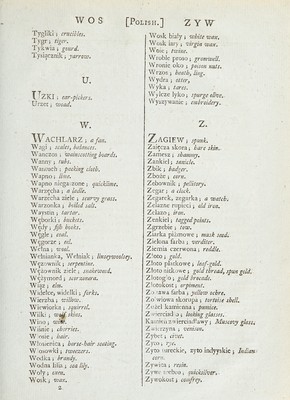 WOS [POLISH.] ZYW
Tygliki; crucibles.
Tygr; tiger.
Tykwia; gourd.
Tysiącznik; yarrow.
U.
UZKI; ear-pickers.
Urzet; woad.
W.
WACHLARZ; a fan.
Wagi; scales, balances.
Wanczos; wainscotting boards.
Wanny; tubs.
Wantuch; packing cloth.
Wapno; lime.
Wapno niegaszone; quicklime.
Warząchа; a ladle.
Warzęcha ziele; scurvy grass.
Warzonka; boiled salt.
Waystin; tartar.
Węborki; buckets.
Wędy; fish hooks.
Węgle; coal.
Węgorze; eel.
Wełna; wool.
Wełnianka, Wełniski; linseywoolsey.
Wężownik; serpentine.
Wężownik ziele; snakeweed.
Wężymord; scorzonera.
Wiąz; elm.
Widelce, widełki; forks.
Wierzba; willow.
Wiewiorka; squirrel.
Wilki; skins.
Wino; wine.
Wiśnie; cherries.
Włosie; hair.
Włosienica; horse-hair seating.
Włosowki; tweezers.
Wodka; brandy.
Wodna lilia; sea lily.
Woły; oxen.
Wosk; wax.
2
Wosk biały; white wax.
Wosk iary; virgin wax.
Wote; twine.
Wroble proso; gromwell.
Wronie oko; poison nuts.
Wrzos; heath, ling.
Wydra; otter,
Wyka; tares.
Wylcze łyko; spurge olive.
Wyszywanie; embroidery.
Z.
ZAGIEW; spunk.
Zaięcza skora; hare skin.
Zamesz; shammy.
Zankiel; sanicle.
Zbik; badger.
Zboże; corn.
Zebownik; pellitory.
Zegar; a clock.
Zegarek, zegarka; a watch.
Zelazne rupieci; old iron.
Zelazo; iron.
Zenkiel; tagged points.
Zgrzebie; tow.
Ziarka piżmowe; musk seed.
Zielona farba; verditer.
Ziemia czerwona; reddle.
Złoto; gold.
Złoto płatkowe; leaf-gold.
Złoto nitkowe; gold thread, spun gold.
Złotogłow; gold brocade.
Złotokost; orpiment.
farba; yellow ochre.
Żołwiowa skorupa; tortoise shell.
Żużel kamienna; pumice.
Zwierciadło; looking glasses.
Kamien zwierciadlawy; Muscovy glass.
Zwierzyna; venison.
Zybet; civet.
Żyto; rye.
Żyto tureckie, zyto indyyskie; Indian-
corn.
Żywica; rosin.
Żywe srebro; quicksilver.
Żywokost; comfrey.